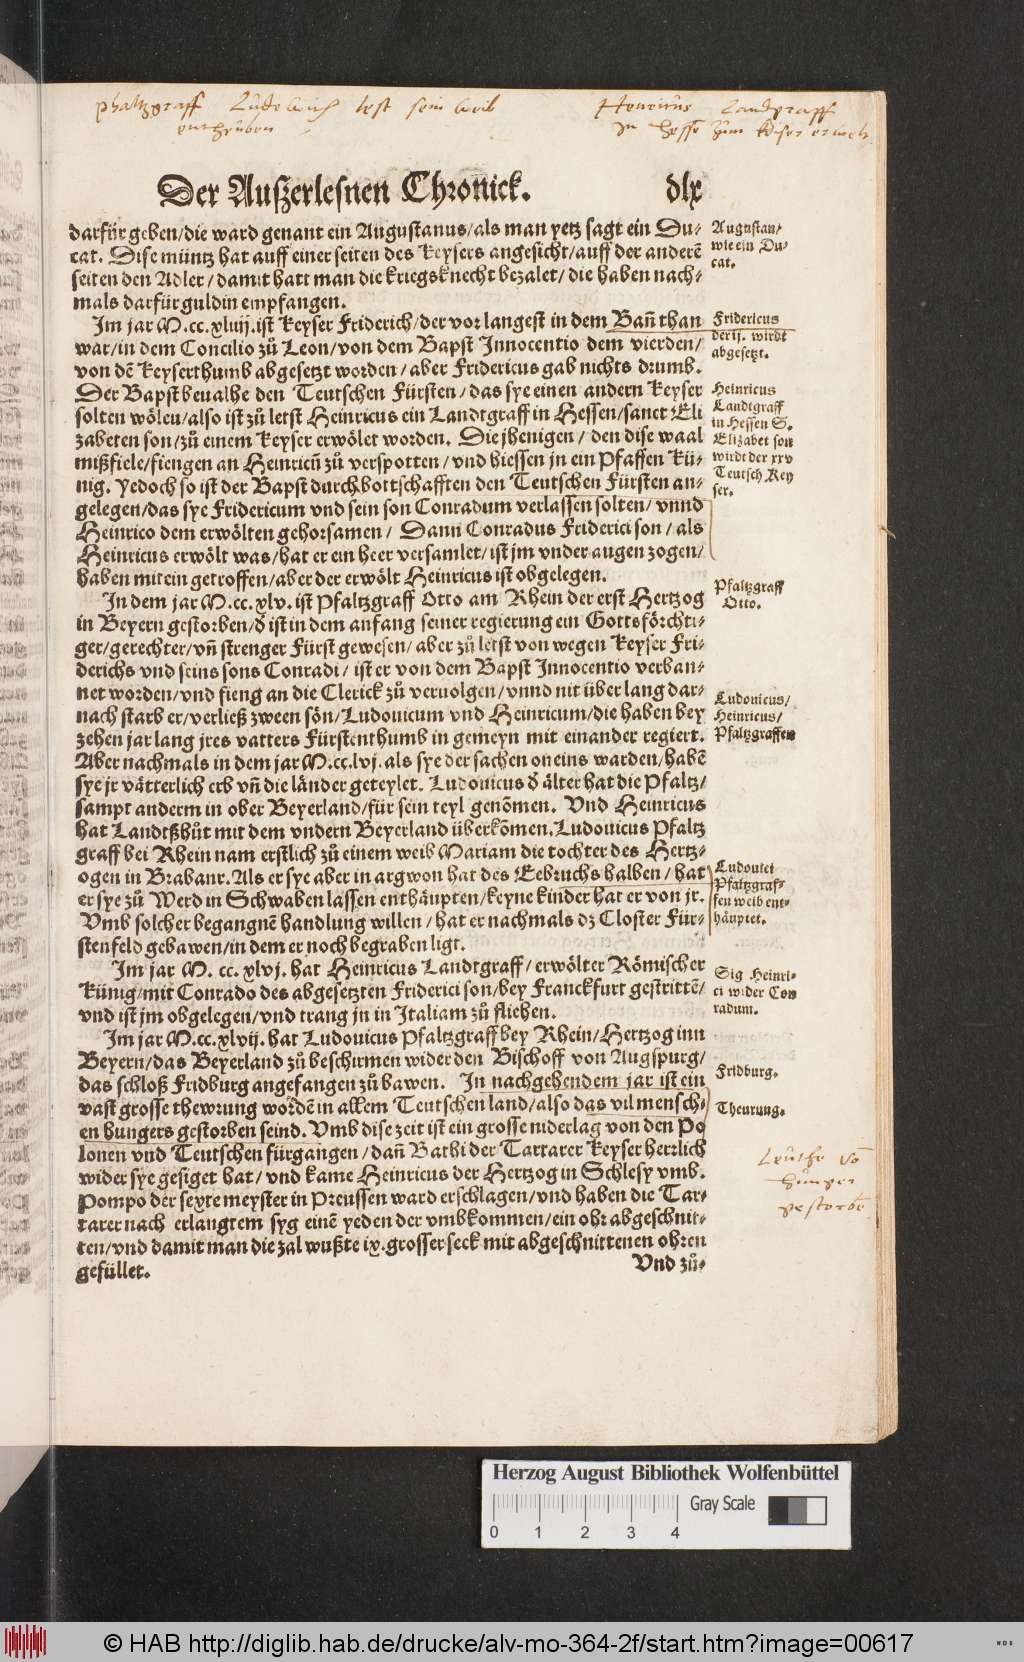 phaltzgraff Ludewich lest sein weib
entheuben
Henricus Landgraff
in Hesse zum keiser erwelt
Der Außerlesnen Chronick. dlx
darfür geben/die ward genant ein Augustanus/als man yetz sagt ein Du-
cat. Dise müntz hat auff einer seiten des Keysers angesicht/auff der anderē
seiten den Adler/damit hatt man die kriegsknecht bezalet/die haben nach-
mals darfür guldin empfangen.
Im jar M.cc.xluij.ist Keyser Friderich/der vor langest in dem Bañ than
war/in dem Concilio zů Leon/von dem Bapst Innocentio dem vierden/
von dē Keyserthumb abgesetzt worden/aber Fridericus gab nichts drumb.
Der Bapst beualhe den Teutschen Fürsten/das sye einen andern Keyser
solten wölen/also ist zů letst Heinricus ein Landtgraff in Hessen/sanct Eli
zabeten son/zů einem Keyser erwölet worden. Die jhenigen/den dise waal
mißfiele/fiengen an Heinricū zů verspotten/vnd hiessen jn ein Pfaffen Kü-
nig. Yedoch so ist der Bapst durch bottschafften den Teutschen Fürsten an-
gelegen/das sye Fridericum vnd sein son Conradum verlassen solten/vnnd
Heinrico dem erwölten gehorsamen/Dann Conradus Friderici son/als
Heinricus erwölt was/hat er ein heer versamlet/ist jm vnder augen zogen/
haben mit ein getroffen/aber der erwölt Heinricus ist obgelegen.
In dem jar M.cc.xlv. ist Pfaltzgraff Otto am Rhein der erst Hertzog
in Beyern gestorben/d̄ ist in dem anfang seiner regierung ein Gottsförchti-
ger/gerechter/vñ strenger Fürst gewesen/aber zů letst von wegen Keyser Fri-
derichs vnd seins sons Conradi/ist er von dem Bapst Innocentio verban-
net worden/vnd fieng an die Clerick zů veruolgen/vnnd nit über lang dar-
nach starb er/verließ zween sön/Ludouicum vnd Heinricum/die haben bey
zehen jar lang jres vatters Fürstenthumb in gemeyn mit einander regiert.
Aber nachmals in dem jar M.cc.lvj. als sye der sachen oneins warden/habē
sye jr vätterlich erb vñ die länder geteylet. Ludouicus d̄ älter hat die Pfaltz/
sampt anderm in ober Beyerland/für sein teyl genōmen. Vnd Heinricus
hat Landtßhůt mit dem vndern Beyerland überkōmen. Ludouicus Pfaltz
graff bei Rhein nam erstlich zů einem weib Mariam die tochter des Hertz-
ogen in Brabant. Als er sye aber in argwon hat des Eebruchs halben/hat
er sye zů Werd in Schwaben lassen enthäupten/keyne kinder hat er von jr.
Vmb solcher begangnē handlung willen/hat er nachmals dz Closter Für-
stenfeld gebawen/in dem er noch begraben ligt.
Im jar M. cc. xlvj. hat Heinricus Landtgraff/erwölter Römischer
Künig/mit Conrado des abgesetzten Friderici son/bey Franckfurt gestrittē/
vnd ist jm obgelegen/vnd trang jn in Italiam zů fliehen.
Im jar M.cc.xlvij. hat Ludouicus Pfaltzgraff bey Rhein/Hertzog inn
Beyern/das Beyerland zů beschirmen wider den Bischoff von Augspurg/
das schloß Fridburg angefangen zů bawen. In nachgehendem jar ist ein
vast grosse thewrung wordē in allem Teutschen land/also das vil mensch-
en hungers gestorben seind. Vmb dise zeit ist ein grosse niderlag von den Po
lonen vnd Teutschen fürgangen/dañ Bathi der Tartarer Keyser herrlich
wider sye gesiget hat/vnd kame Heinricus der Hertzog in Schlesy vmb.
Pompo der sexte meyster in Preussen ward erschlagen/vnd haben die Tar-
tarer nach erlangtem syg einē yeden der vmbkommen/ein ohr abgeschnit-
ten/vnd damit man die zal wußte ix. grosser seck mit abgeschnittenen ohren
gefüllet. Vnd zů-
Augustan/
wie ein Du-
cat.
Fridericus
der ij. wirdt
abgesetzt.
Heinricus
Landtgraff
in Hessen S.
Elizabet son
wirdt der xxv
Teutsch Key
ser.
Pfaltzgraff
Otto.
Ludouicus/
Heinricus/
Pfaltzgraffen
Ludouici
Pfaltzgraf-
fen weib ent-
häuptet.
Sig Heinri-
ci wider Con
radum.
Fridburg.
Theurung.
Leuthe vō
hunger
gestorbē
Herzog August Bibliothek Wolfenbüttel
0 1 2 3 4 Gray Scale
© HAB http://diglib.hab.de/drucke/alv-mo-364-2f/start.htm?image=00617